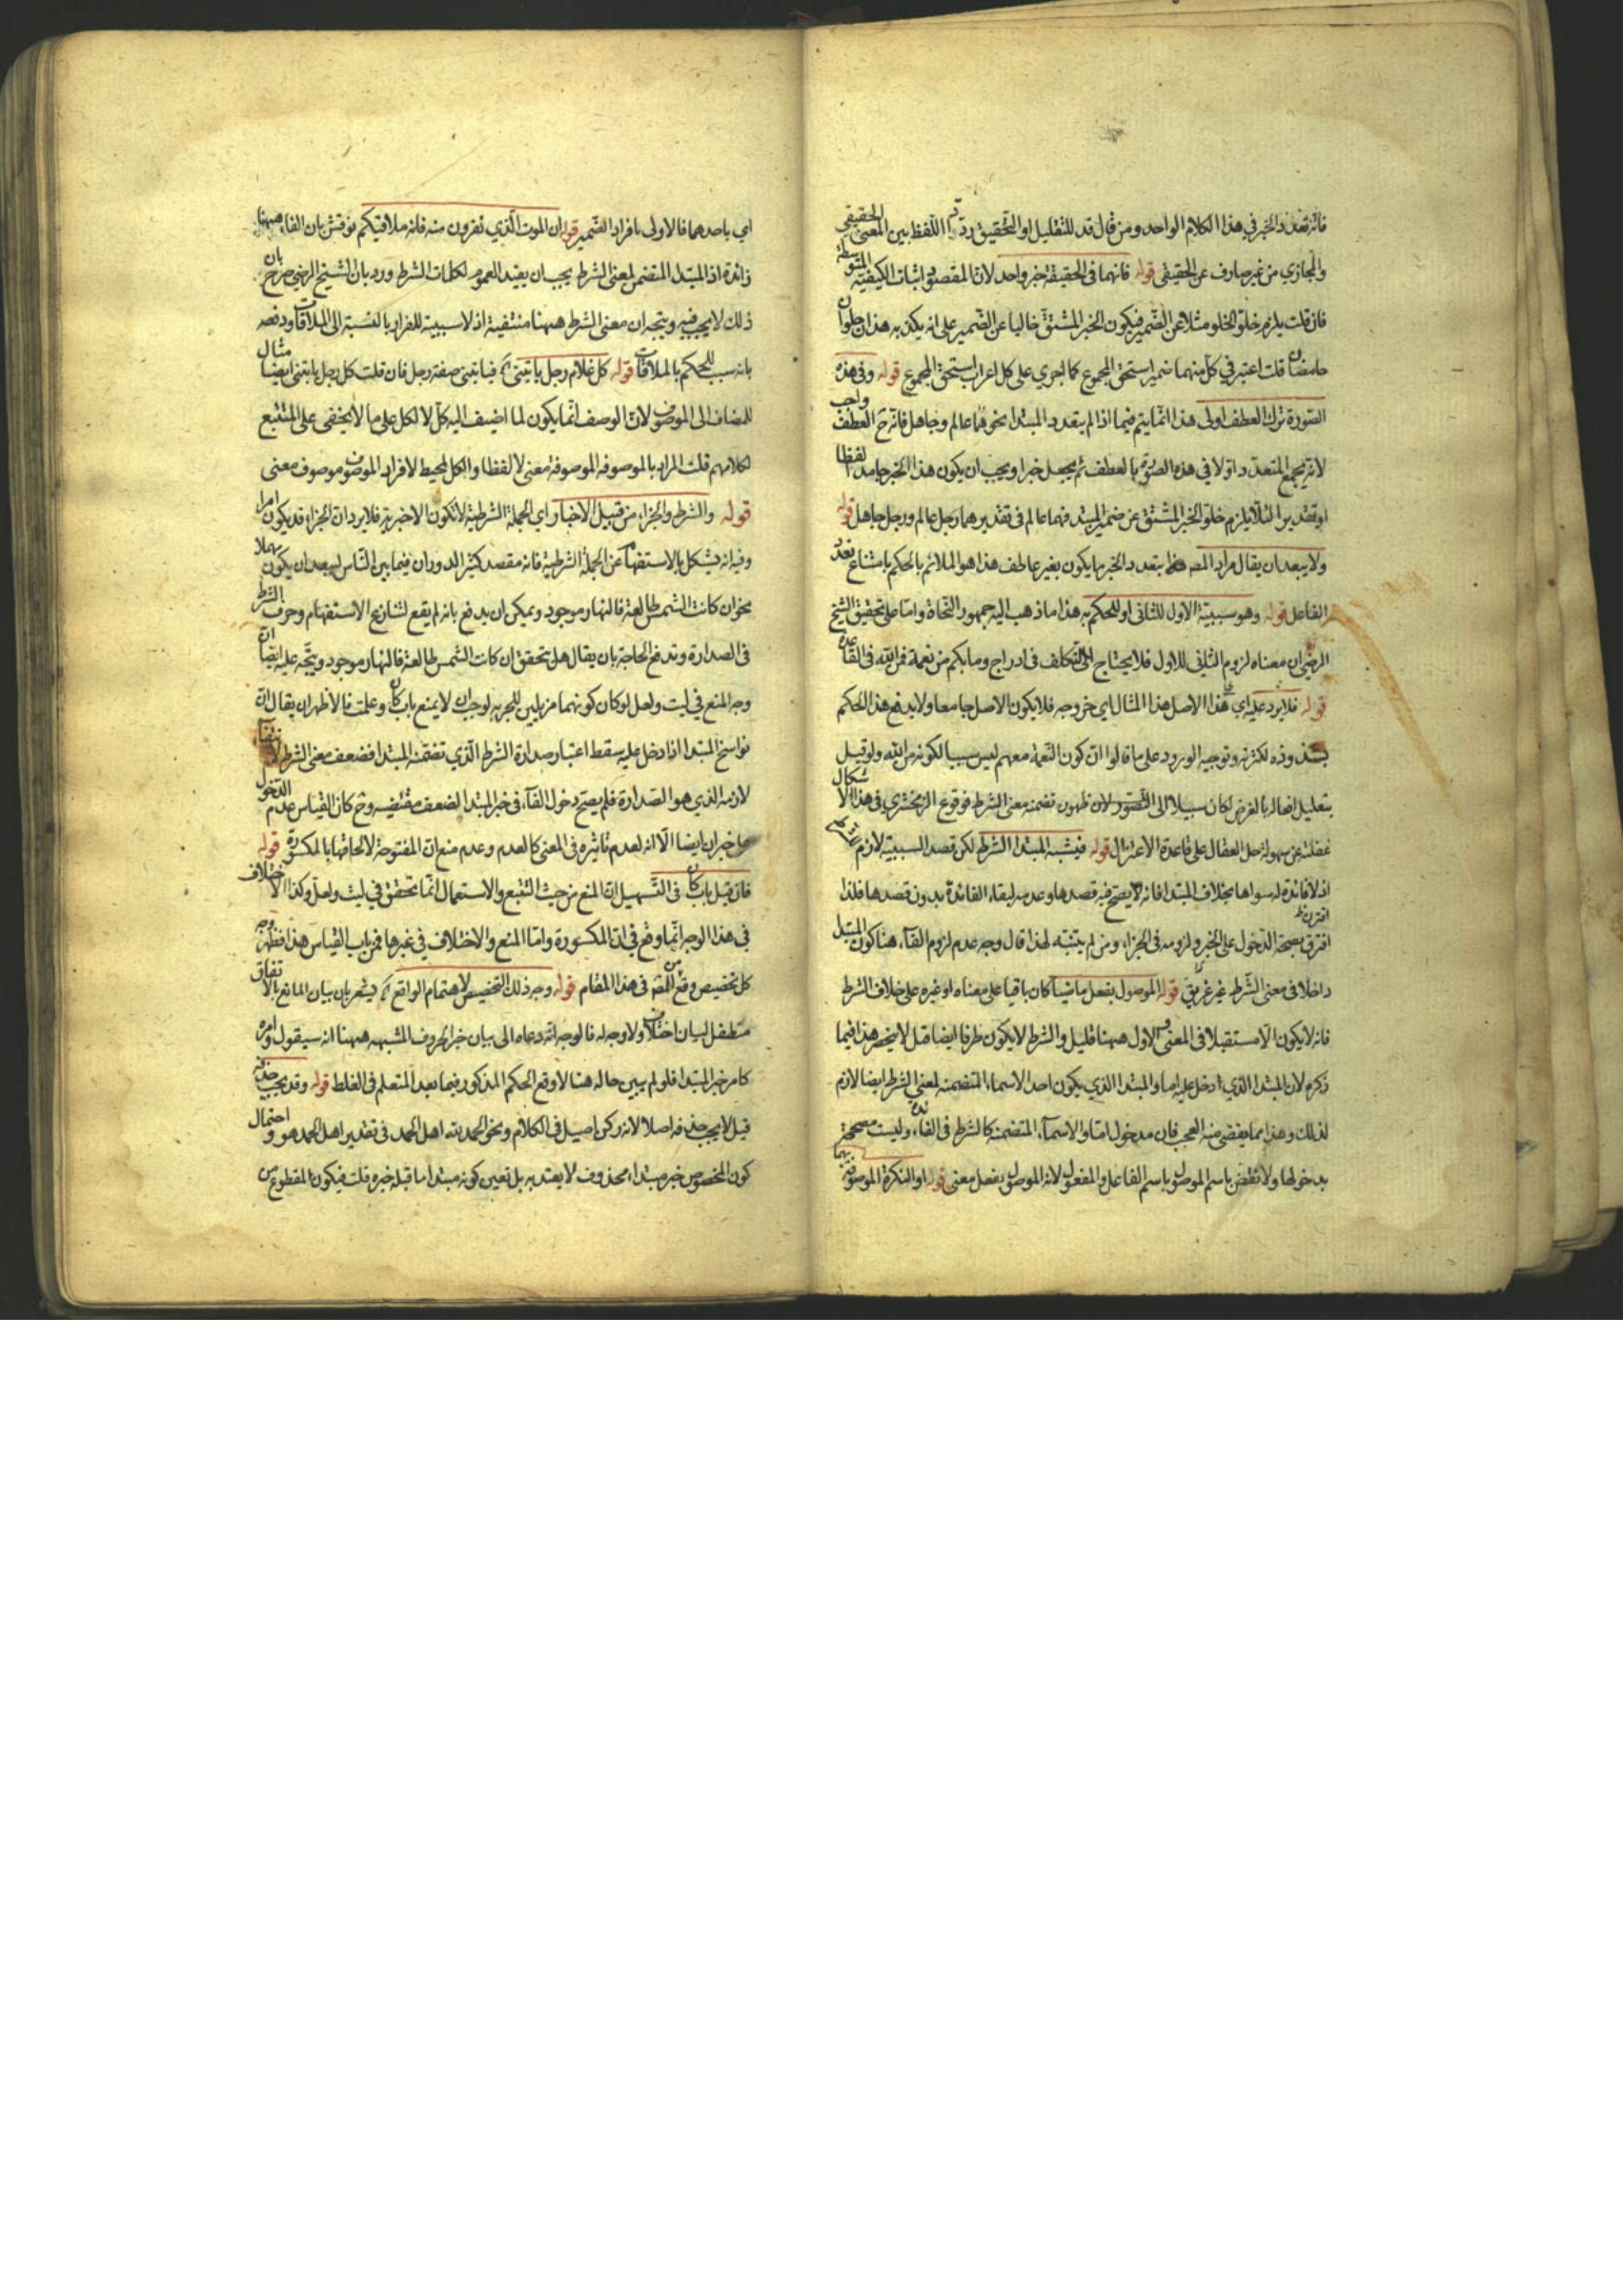 فانه تعدد الخبر في هذا الكلام الواحد ومن قال قد للتقليل او التحقيق ردّ اللفظ بين المعنى الحقيقي
والمجازي من غير صارف عن الحقيقي قوله فانهما في الحقيقة خبر واحد لان المقصود اثبات الكيفية المتوسطة
فان قلت يلزم خلوّ الخلو مثلا عن الضمير فيكون الخبر المشتق خاليا عن الضمير على انه يكذبه هذان حلوان
حامضان قلت اعتبر في كل منهما ضمير استحق المجموع كما اجري على كل اعراب استحق المجموع قوله وفي هذه
الصورة ترك العطف اولى هذا انما يتم فيما اذا لم يتعدد المبتدا نحو هما عالم وجاهل فانه ح العطف واجب
لانه يجمع المتعدد اولا في هذه الصورة بالعطف ثم يجعل خبرا ويجب ان يكون هذا الخبر جامدا لفظا
او تقديرا لئلا يلزم خلو الخبر المشتق عن ضمير المبتدا فهما عالم في تقدير هما رجل عالم ورجل جاهل قوله
ولا يبعد ان يقال مراد المصه بتعدد الخبر ما يكون بغير عاطف هذا هو الملائم بالحكم بامتناع تعدد
الفاعل قوله وهو سببية الاول للثاني او للحكم به هذا ما ذهب اليه جمهور النحاة واما على تحقيق الشيخ
الرضي ان معناه لزوم الثاني للاول فلا يحتاج الى التكلف في ادراج وما بكم من نعمة فمن الله في القاعدة
قوله فلا يرد عليه اي على هذا الاصل هذا المثال اي خروجه فلا يكون الاصل جامعا ولا يدفع هذا الحكم
بشذوذه لكثرته وتوجيه الورود على ما قالوا ان كون النعمة معهم ليس سببا لكونه من الله ولو قيل
بتعليل افعاله بالغرض لكان سبيلا الى التصور لان ظهور تضمنه معنى الشرط فوقوع الزمخشري في هذا الاشكال
غفلته عن سهولة حل العقال على قاعدة الاعتزال قوله فيشبه المبتدا الشرط لكن قصد السببية لازم
اذ لا فائدة له سواها بخلاف المبتدا فانه لا يصح فيه قصدها وعدمه لبقاء الفائدة بدون قصدها فلذا
افترق بصحة الدخول على الخبر ولزومه في الجزاء ومن لم يتنبه لهذا قال وجه عدم لزوم الفاء هنا كون المبتدا
داخلا في معنى الشرط غير غريق قوله الموصول بفعل ماضيا كان باقيا على معناه او غيره على خلاف الشرط
فانه لا يكون الا مستقبلا في المعنى والاول ههنا قليل والشرط لا يكون ظرفا ايضا قيل لا ينحصر هذا فيما
ذكره لان المبتدا الذي دخل عليه اما والمبتدا الذي يكون احد الاسماء المتضمنة لمعنى الشرط ايضا لازم
لذلك وهذا مما يقضى منه العجب فان مدخول اما والاسماء المتضمنة كالشرط في الفاء وليست مصححة
بدخولها ولا تنقض باسم الموصول باسم الفاعل والمفعول لانه الموصول بفعل معنى قوله او النكرة الموصوفة بهما
اي باحدهما فالاولى بافراد الضمير قوله ان الموت الذي تفرون منه فانه ملاقيكم نوقش بان الفاء ههنا
زائدة اذ المبتدا المتضمن لمعنى الشرط يجب ان يفيد العموم لكلمات الشرط ورد بان الشيخ الرضي صرح بان
ذلك لا يجب فيه ويتجه ان معنى الشرط ههنا منتفية اذ لا سببية للفرار بالنسبة الى الملاقات ودفعه
بانه سبب للحكم بالملاقات قوله كل غلام رجل ياتيني فياتيني صفة رجل فان قلت كل رجل ياتيني ايضا مثال
للمضاف الى الموصوف لان الوصف انما يكون لما اضيف اليه كل لا لكل على ما لا يخفى على المتتبع
لكلامهم قلت المراد بالموصوفة الموصوفة معنى لا لفظا والكل المحيط لافراد الموصوف موصوف معنى
قوله والشرط والجزاء من قبيل الاخبار اي الجملة الشرطية لا تكون الا خبرية فلا يرد ان الجزاء قد يكون امرا
وفيه انه يشكل بالاستفهام عن الجملة الشرطية فانه مقصد كثير الدوران فيما بين الناس لبعد ان يكون مهملا
نحو ان كانت الشمس طالعة فالنهار موجود ويمكن ان يدفع بانه لم يقع لتنازع الاستفهام وحرف الشرط
في الصدارة وتدفع الحاجة بان يقال هل تحقق ان كانت الشمس طالعة فالنهار موجود ويتجه عليه ايضا ان
وجه المنع في ليت ولعل لو كان كونهما مزيلين للخبرية لوجب ان لا يمنع باب كان وعلمت فالاظهر ان يقال ان
نواسخ المبتدا اذا دخل عليه سقط اعتبار صدارة الشرط الذي تضمنه المبتدا فضعف معنى الشرط لانتفاء
لازمه الذي هو الصدارة فلم يصح دخول الفاء في خبر المبتدا لضعف مقتضيه وح كان القياس عدم الدخول
خبر ان ايضا الا انه لعدم تاثيره في المعنى كالعدم وعدم منع ان المفتوحة لالحاقها بالمكسورة قوله
فان قيل باب كان في التسهيل ان المنع من حيث التتبع والاستعمال انما تحقق في ليت ولعل وكذا الاختلاف
في هذا الوجه انما وقع في ان المكسورة واما المنع والاختلاف في غيرها فمن باب القياس هذا فظهر وجه
كل تخصيص وقع من المصه في هذا المقام قوله وجه ذلك التخصيص لاهتمام الواقع يشعر بان بيان المانع بالاتفاق
متطفل لبيان اختلاف ولا وجه له فالوجه انه دعاه الى بيان خبر الحروف المشبهه ههنا انه سيقول وامره
كامر خبر المبتدا فلو لم يبين حاله هنا لاوقع الحكم المذكور فيما بعد المتعلم في الغلط قوله وقد يجب حذفه
قيل لا يجب حذفه اصلا لانه ركن اصيل في الكلام ونحو الحمد لله اهل الحمد في تقدير اهل الحمد هو واحتمال
كون المخصوص خبر مبتداء محذوف لا يعتد به بل تعين كونه مبتدا ما قبله خبره قلت فيكون المقطوع من